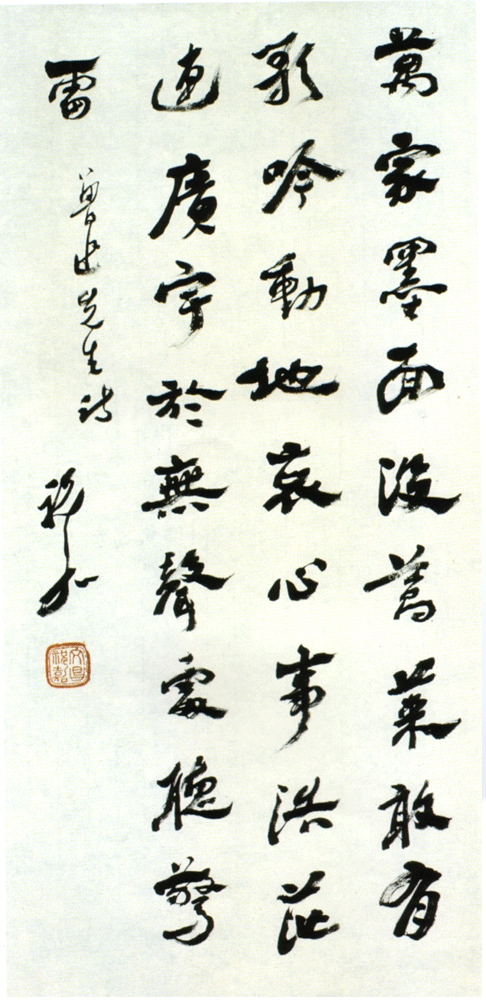 萬家墨面沒蒿萊敢有
歌吟動地哀心事浩茫
連廣宇於無聲處聽驚
雷 魯迅先生詩